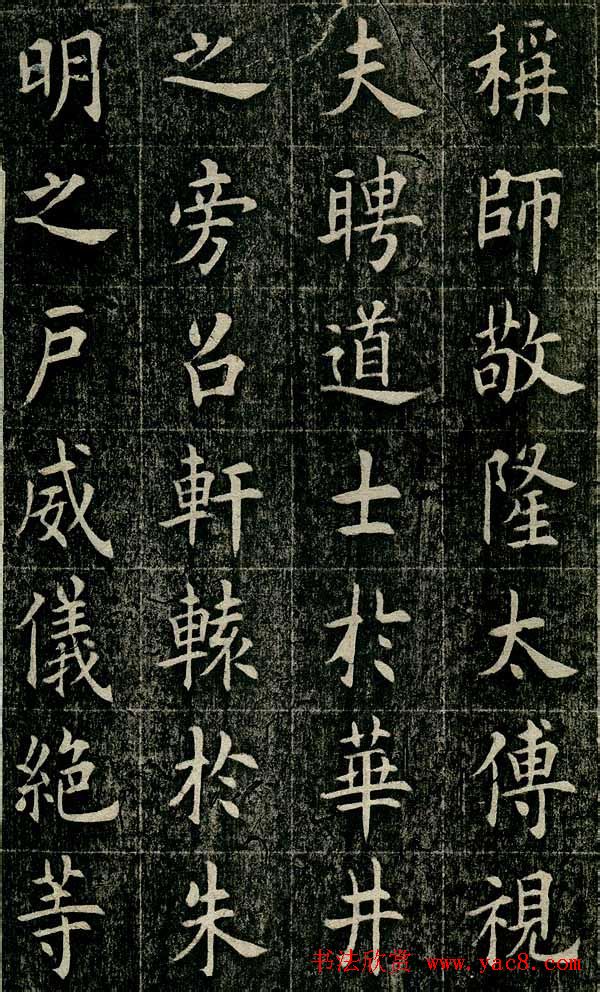 稱師敬隆太傅視
夫聘道士於華井
之旁召軒轅於朱
明之戶威儀絕等
书法欣赏 www.yac8.com